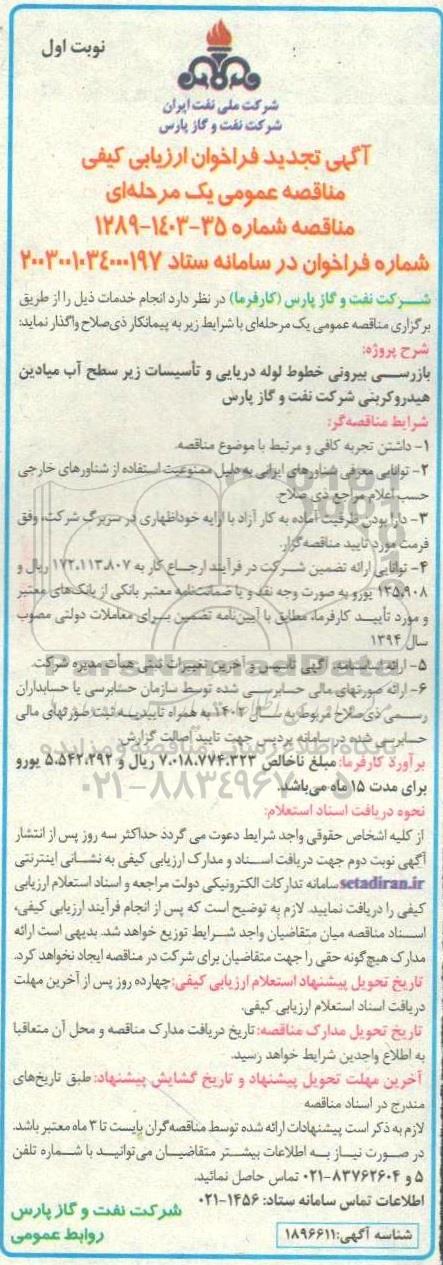 نوبت اول
شرکت ملی نفت ایران
شرکت نفت و گاز پارس
آگهی تجدید فراخوان ارزیابی کیفی
مناقصه عمومی یک مرحله‌ای
مناقصه شماره ۳۵-۱۴۰۳-۱۲۸۹
شماره فراخوان در سامانه ستاد ۲۰۰۳۰۰۱۰۳۴۰۰۰۱۹۷
شرکت نفت و گاز پارس (کارفرما) در نظر دارد انجام خدمات ذیل را از طریق
برگزاری مناقصه عمومی یک مرحله‌ای با شرایط زیر به پیمانکار ذی‌صلاح واگذار نماید:
شرح پروژه:
بازرسی بیرونی خطوط لوله دریایی و تأسیسات زیر سطح آب میادین
هیدروکربنی شرکت نفت و گاز پارس
شرایط مناقصه‌گر:
۱- داشتن تجربه کافی و مرتبط با موضوع مناقصه.
۲- توانایی معرفی شناورهای ایرانی به دلیل ممنوعیت استفاده از شناورهای خارجی
حسب اعلام مراجع ذی صلاح.
۳- دارا بودن ظرفیت آماده به کار آزاد با ارایه خوداظهاری در سربرگ شرکت، وفق
فرمت مورد تایید مناقصه‌گزار.
۴- توانایی ارائه تضمین شرکت در فرآیند ارجاع کار به ۱۷۲.۱۱۳.۸۰۷ ریال و
۱۳۵.۹۰۸ یورو به صورت وجه نقد و یا ضمانت‌نامه معتبر بانکی از بانک‌های معتبر
و مورد تأیید کارفرما، مطابق با آیین‌نامه تضمین برای معاملات دولتی مصوب
سال ۱۳۹۴
۵- ارائه اساسنامه، آگهی تاسیس و آخرین تغییرات ثبتی هیأت مدیره شرکت.
۶- ارائه صورتهای مالی حسابرسی شده توسط سازمان حسابرسی یا حسابداران
رسمی ذی‌صلاح مربوط به سال ۱۴۰۲ به همراه تاییدیه ثبت صورتهای مالی
حسابرسی شده در سامانه پردیس جهت تایید اصالت گزارش.
برآورد کارفرما: مبلغ ناخالص ۷.۰۱۸.۷۷۴.۳۲۳ ریال و ۵.۵۴۲.۲۹۲ یورو
برای مدت ۱۵ ماه می‌باشد.
نحوه دریافت اسناد استعلام:
از کلیه اشخاص حقوقی واجد شرایط دعوت می گردد حداکثر سه روز پس از انتشار
آگهی نوبت دوم جهت دریافت اسناد و مدارک ارزیابی کیفی به نشانی اینترنتی
setadiran.ir سامانه تدارکات الکترونیکی دولت مراجعه و اسناد استعلام ارزیابی
کیفی را دریافت نمایید. لازم به توضیح است که پس از انجام فرآیند ارزیابی کیفی،
اسناد مناقصه میان متقاضیان واجد شرایط توزیع خواهد شد. بدیهی است ارائه
مدارک هیچ‌گونه حقی را جهت متقاضیان برای شرکت در مناقصه ایجاد نخواهد کرد.
تاریخ تحویل پیشنهاد استعلام ارزیابی کیفی: چهارده روز پس از آخرین مهلت
دریافت اسناد استعلام ارزیابی کیفی.
تاریخ تحویل مدارک مناقصه: تاریخ دریافت مدارک مناقصه و محل آن متعاقبا
به اطلاع واجدین شرایط خواهد رسید.
آخرین مهلت تحویل پیشنهاد و تاریخ گشایش پیشنهاد: طبق تاریخ‌های
مندرج در اسناد مناقصه
لازم به ذکر است پیشنهادات ارائه شده توسط مناقصه‌گران بایست تا ۳ ماه معتبر باشد.
در صورت نیاز به اطلاعات بیشتر متقاضیان می‌توانید با شماره تلفن
۵ و ۸۳۷۶۲۶۰۴-۰۲۱ تماس حاصل نمائید.
اطلاعات تماس سامانه ستاد: ۱۴۵۶-۰۲۱
شرکت نفت و گاز پارس
روابط عمومی
شناسه آگهی: ۱۸۹۶۶۱۱
ParsNamadData
پایگاه اطلاع رسانی مناقصه و مزایده
۰۲۱-۸۸۳۴۹۶۷۰-۵